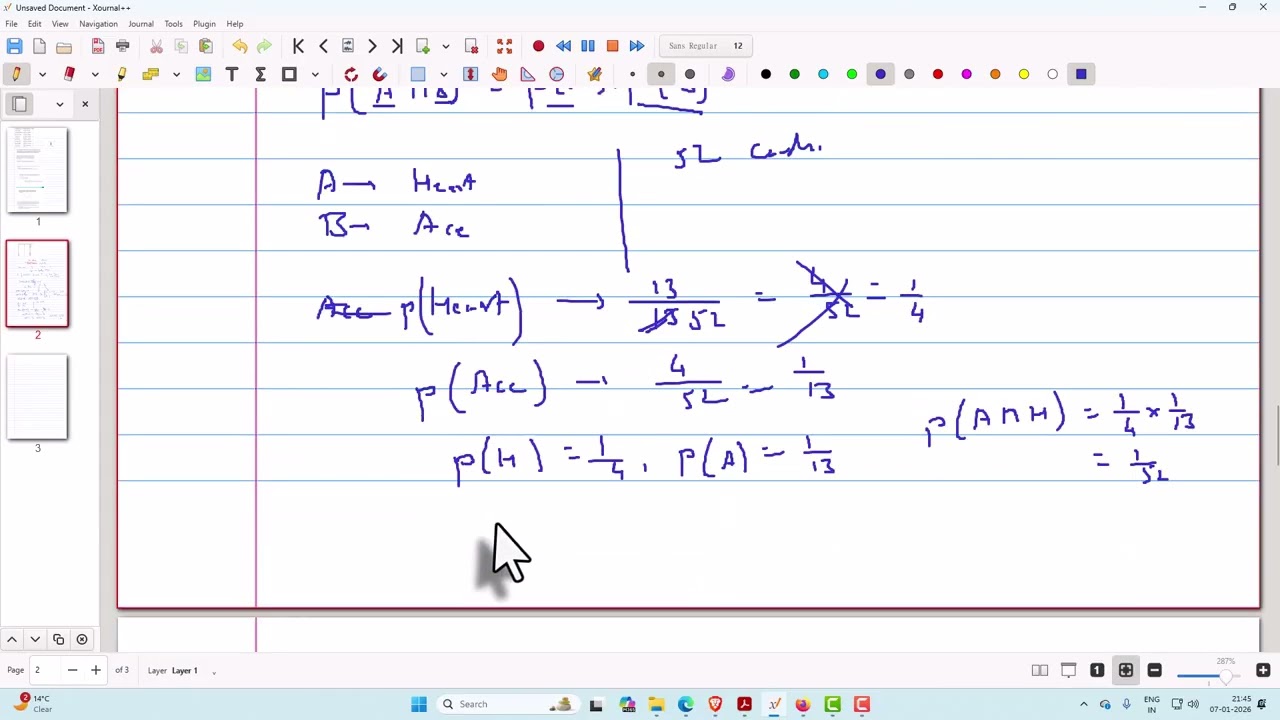 Unsaved Document - Xournal++
File Edit View Navigation Journal Tools Plugin Help
Sans Regular 12
P(A ∩ B) =
52 cards.
A → Heart
B → Ace
P(Heart) → 13/52 = 1/4
P(Ace) → 4/52 = 1/13
P(A ∩ H) = 1/4 × 1/13
P(H) = 1/4, P(A) = 1/13
= 1/52
1
2
3
Page 2 of 3 Layer Layer 1
287%
2
14°C
Clear
Search
ENG
IN
21:45
07-01-2026